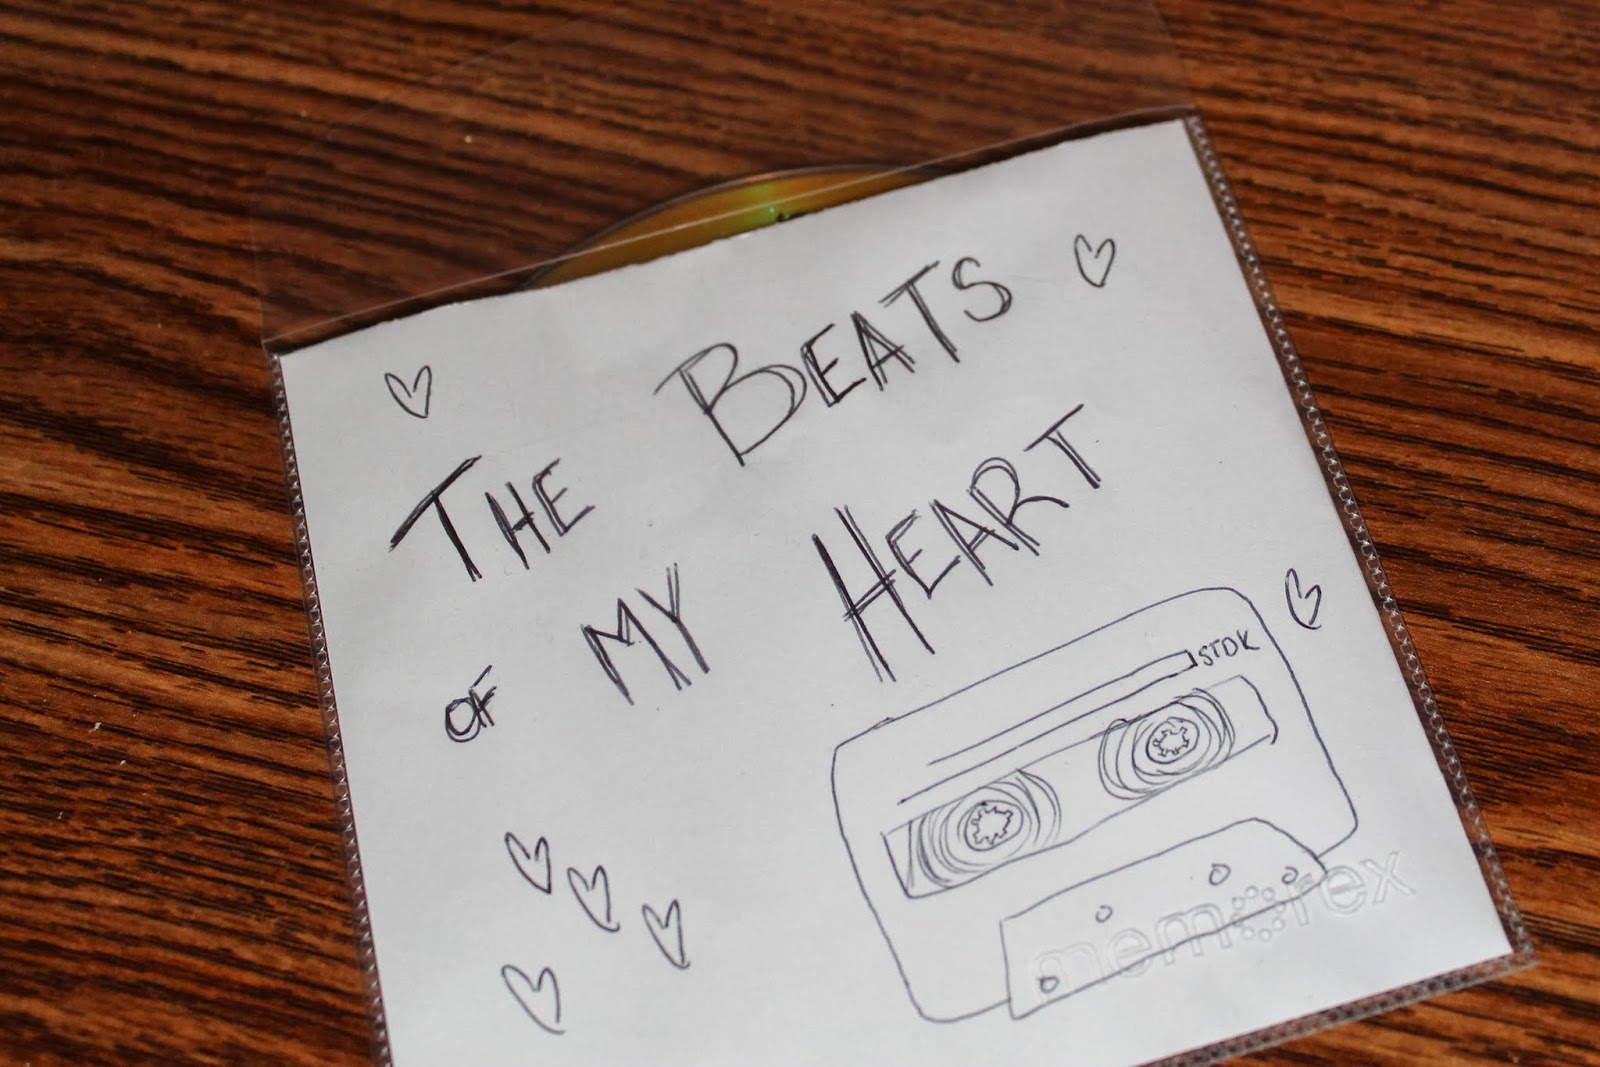 THE BEATS
OF MY HEART
STDK
memorex